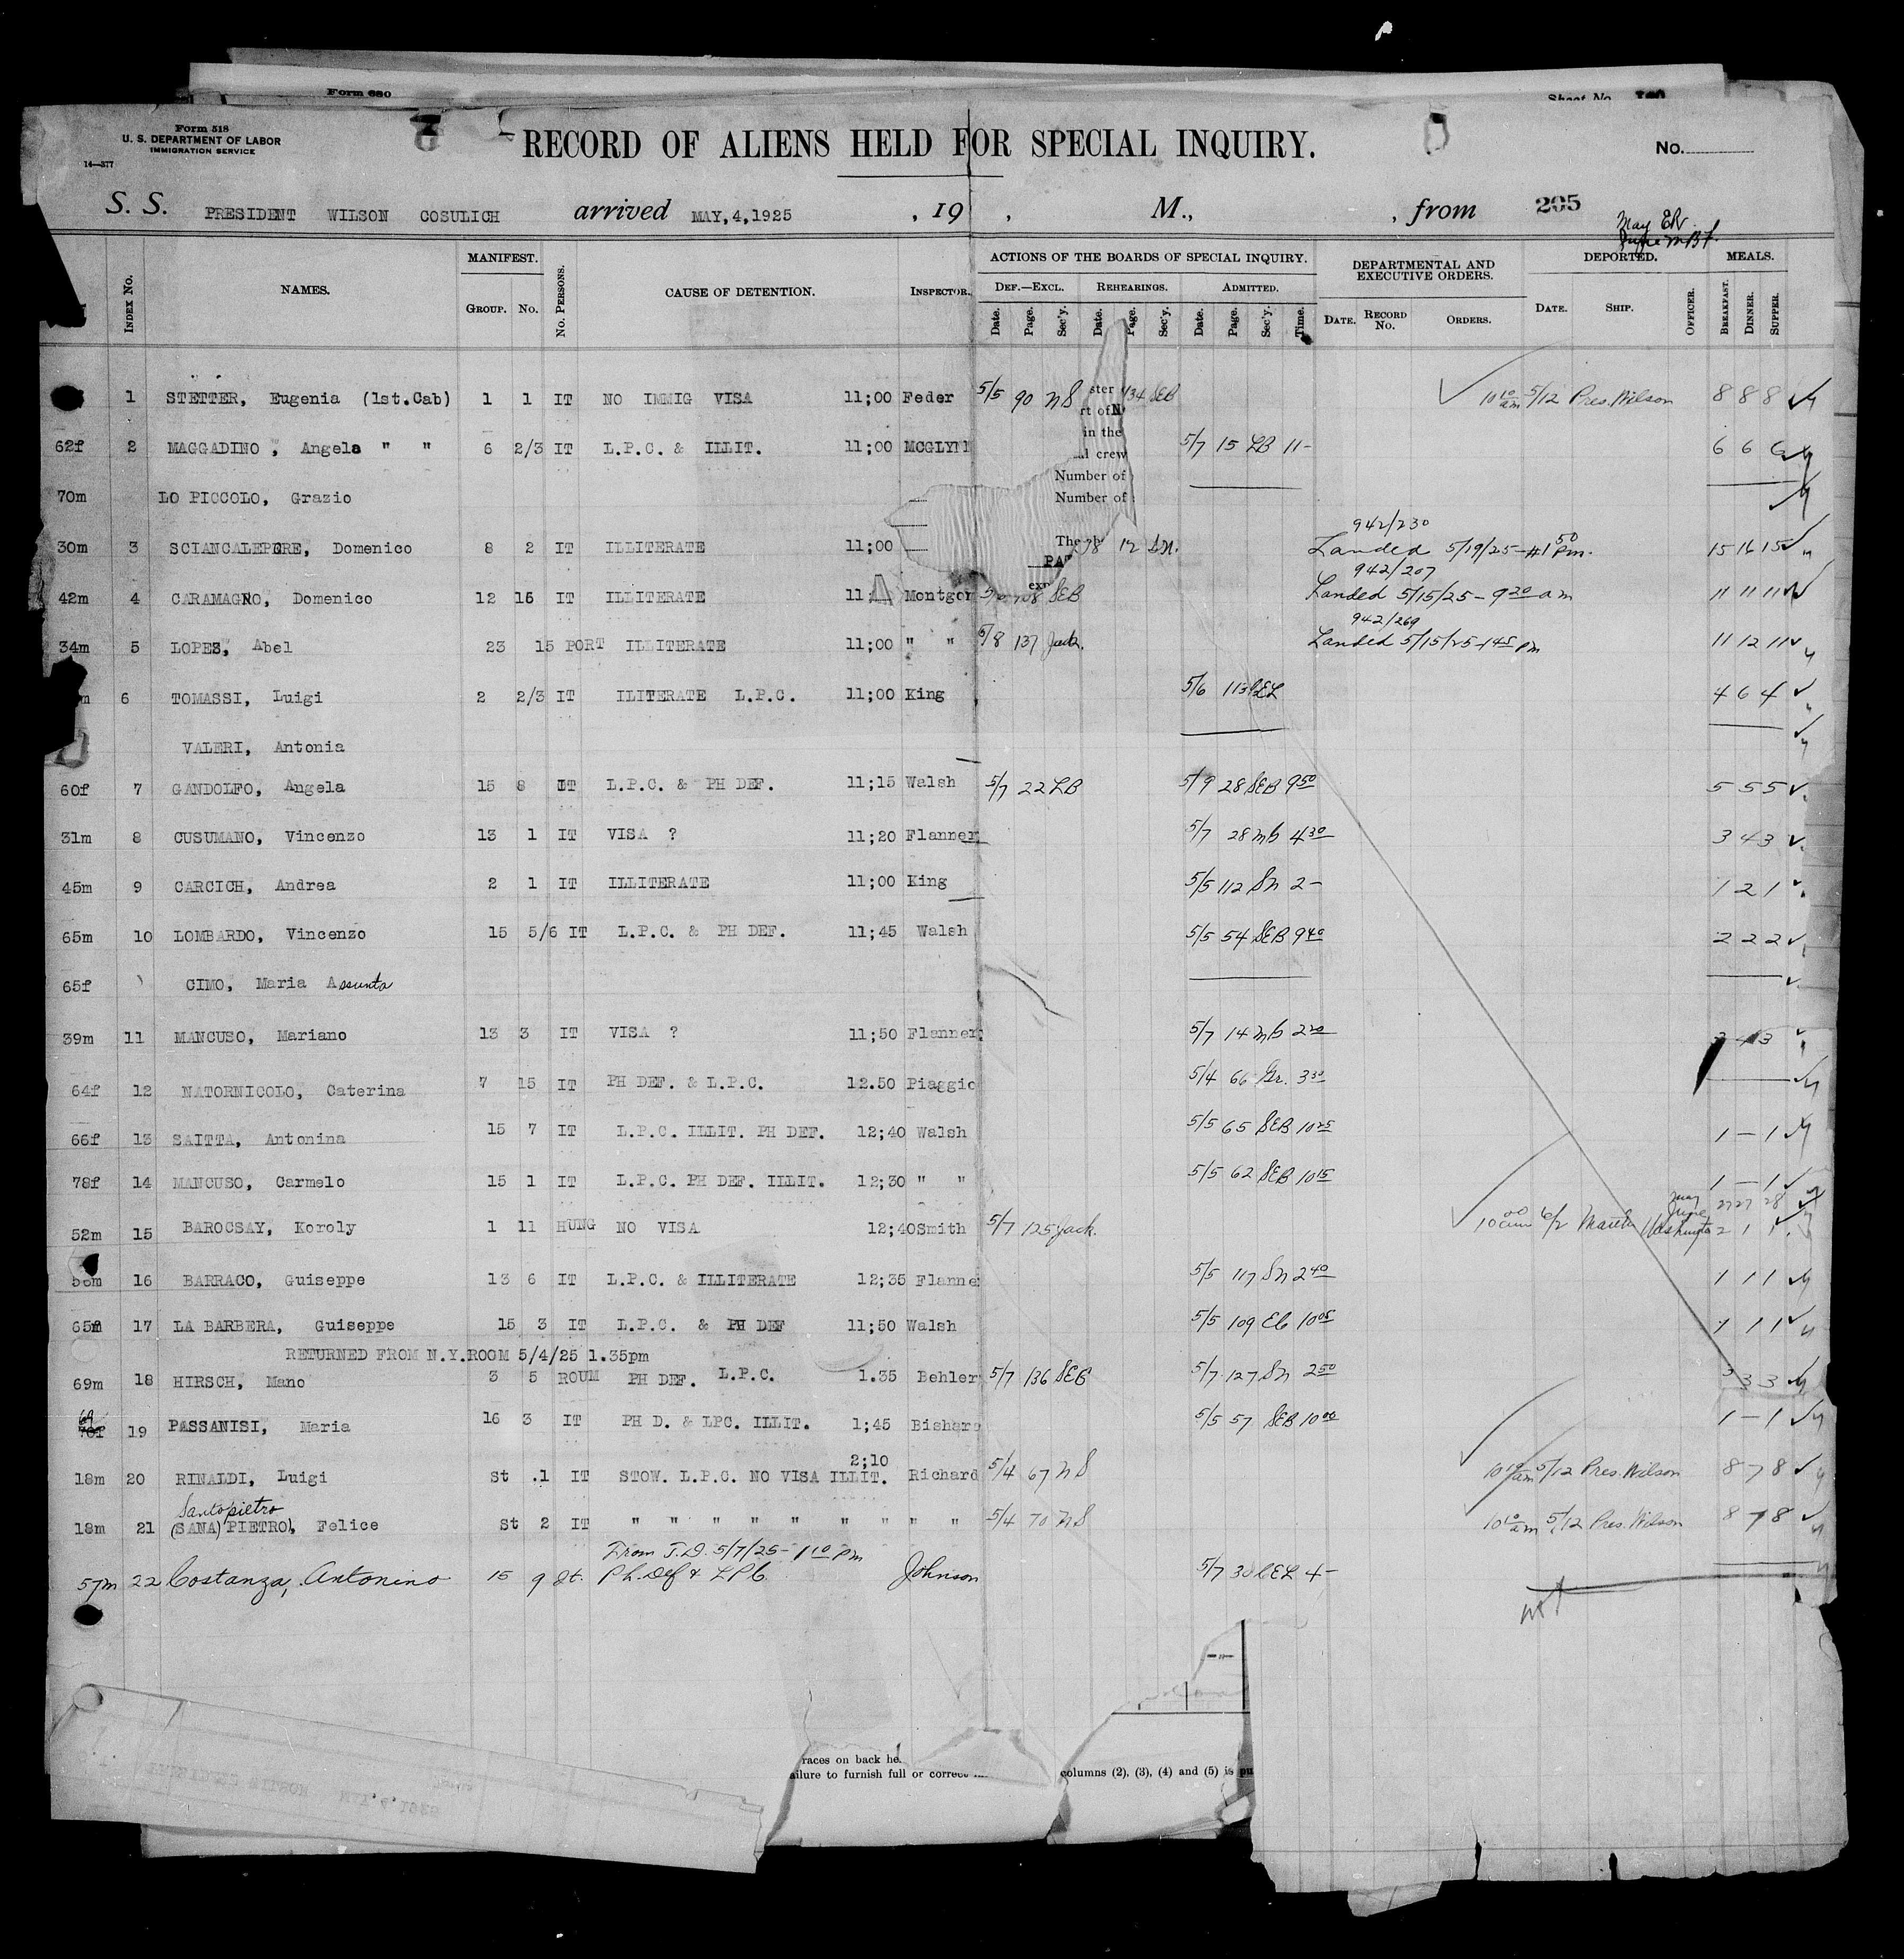 Form 630
Sheet No.
Form 518
U. S. DEPARTMENT OF LABOR
IMMIGRATION SERVICE
14—377
RECORD OF ALIENS HELD FOR SPECIAL INQUIRY.
No.
S. S. PRESIDENT WILSON COSULICH arrived MAY,4,1925 , 19 , M., , from 205
May ER
June
MANIFEST. ACTIONS OF THE BOARDS OF SPECIAL INQUIRY. DEPARTMENTAL AND EXECUTIVE ORDERS. DEPORTED. MEALS.
Index No. NAMES. Group. No. No. Persons. CAUSE OF DETENTION. Inspector. Def.—Excl. Rehearings. Admitted.
Date. Page. Sec'y. Date. Page. Sec'y. Date. Page. Sec'y. Time. Date. Record No. Orders. Date. Ship. Officer. Breakfast. Dinner. Supper.
1 STETTER, Eugenia (1st.Cab) 1 1 IT NO IMMIG VISA 11;00 Feder 5/5 90 NS 134 SEB 10 10 am 5/12 Pres. Wilson 8 8 8
ster
rt of
in the
62f 2 MAGGADINO , Angela " " 6 2/3 IT L.P.C. & ILLIT. 11;00 MCGLYN 5/7 15 LB 11- 6 6 6
al crew
Number of
70m LO PICCOLO, Grazio
Number of
942/230
30m 3 SCIANCALEPORE, Domenico 8 2 IT ILLITERATE 11;00 12 Landed 5/19/25 - #1 50 pm. 15 16 15
The
942/207
42m 4 CARAMAGNO, Domenico 12 15 IT ILLITERATE 11; Montgom SEB Landed 5/15/25 - 9 20 am 11 11 11
942/269
34m 5 LOPES, Abel 23 15 PORT ILLITERATE 11;00 " " 5/8 137 Jack. Landed 5/15/25 - 1 45 pm 11 12 11
m 6 TOMASSI, Luigi 2 2/3 IT ILITERATE L.P.C. 11;00 King 5/6 113 LEL 4 6 4
VALERI, Antonia
60f 7 GANDOLFO, Angela 15 8 IT L.P.C. & PH DEF. 11;15 Walsh 5/7 22 LB 5/9 28 SEB 9 50 5 5 5
31m 8 CUSUMANO, Vincenzo 13 1 IT VISA ? 11;20 Flanner 5/7 28 mb 4 30 3 4 3
45m 9 CARCICH, Andrea 2 1 IT ILLITERATE 11;00 King 5/5 112 Sn 2- 1 2 1
65m 10 LOMBARDO, Vincenzo 15 5/6 IT L.P.C. & PH DEF. 11;45 Walsh 5/5 54 SEB 9 40 2 2 2
65f CIMO, Maria Assunta
39m 11 MANCUSO, Mariano 13 3 IT VISA ? 11;50 Flanner 5/7 14 mb 2 20 3 4 3
64f 12 NATORNICOLO, Caterina 7 15 IT PH DEF. & L.P.C. 12.50 Piaggio 5/4 66 Gr. 3 30
66f 13 SAITTA, Antonina 15 7 IT L.P.C. ILLIT. PH DEF. 12;40 Walsh 5/5 65 SEB 10 25 1 — 1
78f 14 MANCUSO, Carmelo 15 1 IT L.P.C. PH DEF. ILLIT. 12;30 " " 5/5 62 SEB 10 15 1 — 1
May 27 27 28
June
52m 15 BAROCSAY, Koroly 1 11 HUNG NO VISA 12;40 Smith 5/7 125 Jack. 10 00 am 6/2 Martha Washington 2 1 1
16 BARRACO, Guiseppe 13 6 IT L.P.C. & ILLITERATE 12;35 Flanne 5/5 117 Sn 2 40 1 1 1
65m 17 LA BARBERA, Guiseppe 15 3 IT L.P.C. & PH DEF 11;50 Walsh 5/5 109 Eb 10 05 1 1 1
RETURNED FROM N.Y.ROOM 5/4/25 1.35pm
69m 18 HIRSCH, Mano 3 5 ROUM PH DEF. L.P.C. 1.35 Behler 5/7 136 SEB 5/7 127 Sn 2 50 3 3 3
69 70f 19 PASSANISI, Maria 16 3 IT PH D. & LPC. ILLIT. 1;45 Bishara 5/5 57 SEB 10 00 1 — 1
2;10
18m 20 RINALDI, Luigi St .1 IT STOW. L.P.C. NO VISA ILLIT. Richard 5/4 67 NS 10 10 am 5/12 Pres. Wilson 8 7 8
Santopietro
18m 21 (SANA) PIETRO), Felice St 2 IT " " " " " " " " " 5/4 70 NS 10 10 am 5/12 Pres. Wilson 8 7 8
From T.D. 5/7/25 - 1 10 pm
57m 22 Costanza, Antonino 15 9 It. Ph. Def & LPC. Johnson 5/7 30 LEL 4-
races on back he
ailure to furnish full or correct
columns (2), (3), (4) and (5) is pu
PRESIDENT WILSON MAY,4,1925